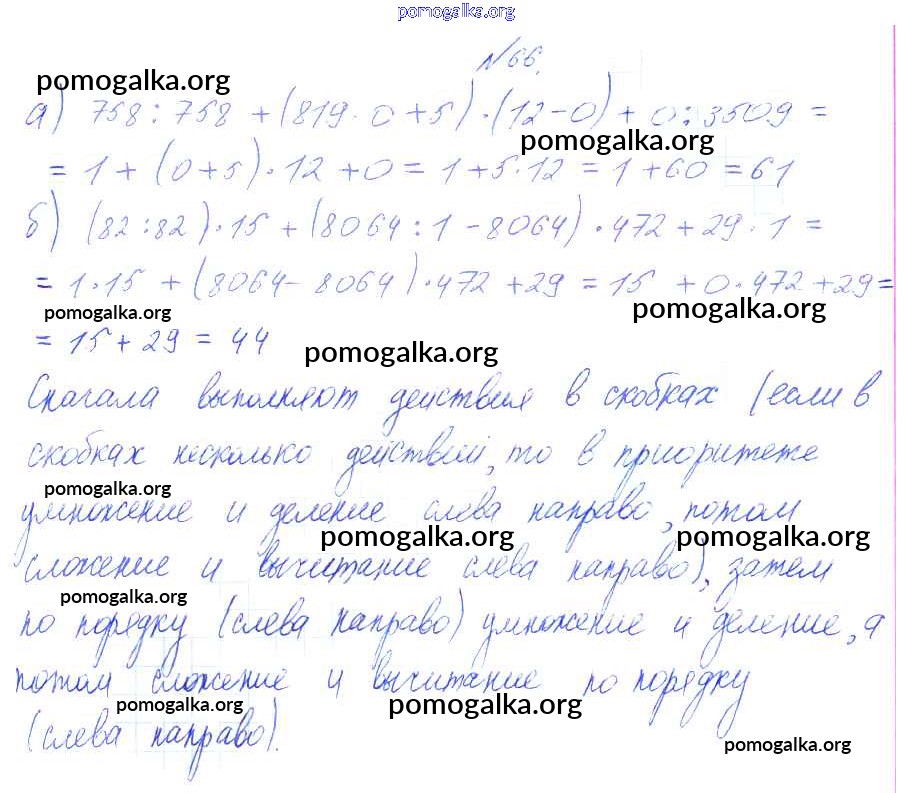 pomogalka.org
№66.
pomogalka.org
а) 758 : 758 + (819 · 0 + 5) · (12 − 0) + 0 : 3509 =
pomogalka.org
= 1 + (0 + 5) · 12 + 0 = 1 + 5 · 12 = 1 + 60 = 61
б) (82 : 82) · 15 + (8064 : 1 − 8064) · 472 + 29 · 1 =
= 1 · 15 + (8064 − 8064) · 472 + 29 = 15 + 0 · 472 + 29 =
pomogalka.org pomogalka.org
= 15 + 29 = 44
pomogalka.org
Сначала выполняют действия в скобках (если в
скобках несколько действий, то в приоритете
pomogalka.org
умножение и деление слева направо, потом
pomogalka.org pomogalka.org
сложение и вычитание слева направо), затем
pomogalka.org
по порядку (слева направо) умножение и деление, а
потом сложение и вычитание по порядку
pomogalka.org pomogalka.org
(слева направо).
pomogalka.org